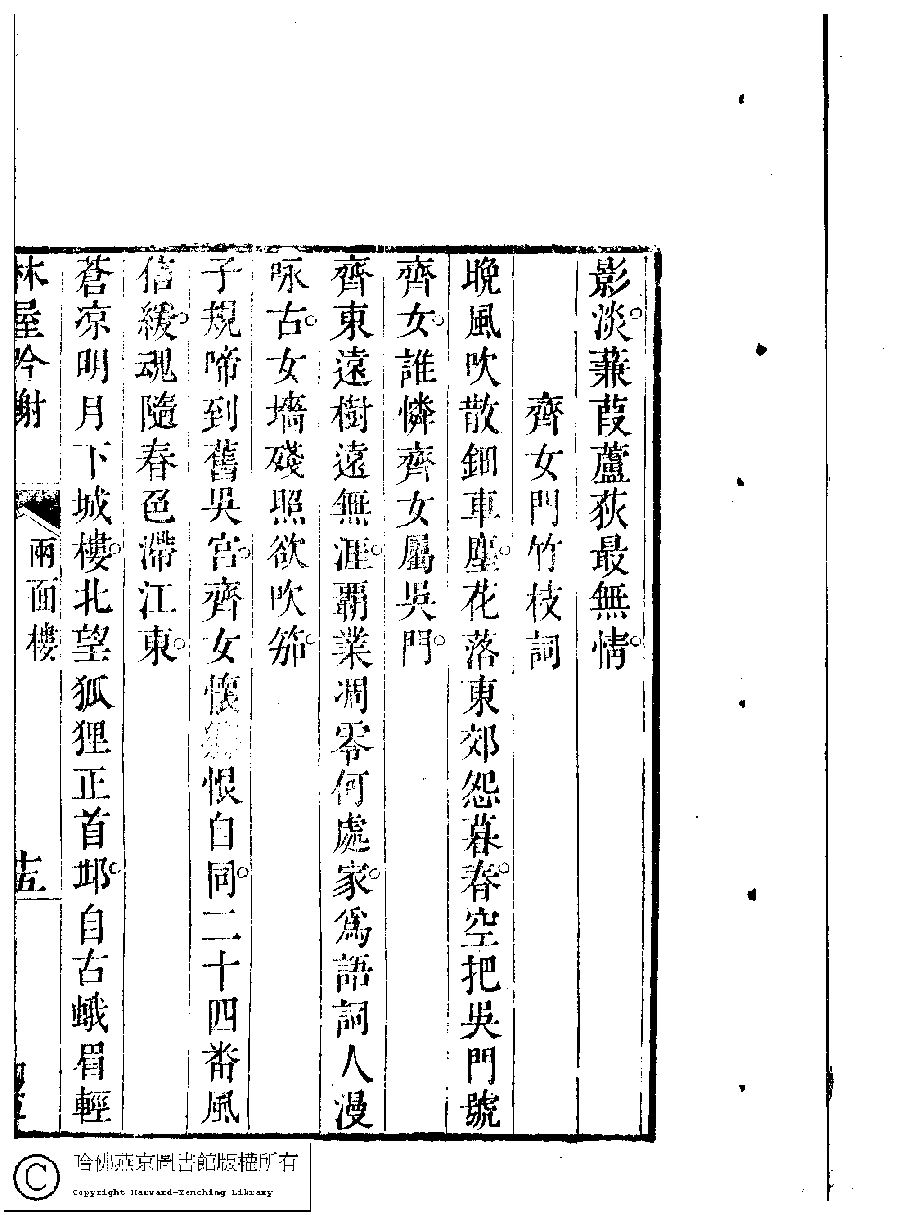 影淡蒹葭蘆荻最無情
齊女門竹枝詞
晚風吹散鈿車塵花落東郊怨暮春空把吳門號
齊女誰憐齊女屬吳門
齊東遠樹遠無涯覇業凋零何處家爲語詞人漫
咏古女墻殘照欲吹笳
子規啼到舊吳宮齊女懷恨自同二十四番風
信緩魂隨春色滯江東
蒼凉明月下城樓北望狐狸正首邱自古蛾眉輕
林屋吟榭
兩面樓
十五
哈佛燕京圖書館版權所有
Copyright Harvard-Yenching Library